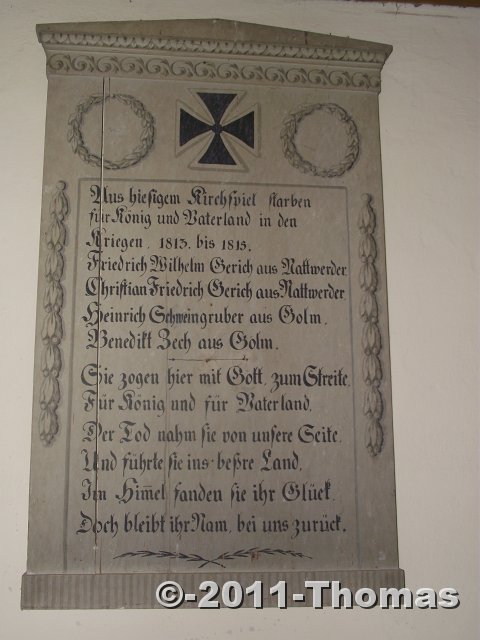 Aus hiesigem Kirchspiel starben
für König und Vaterland in den
Kriegen. 1813. bis 1815.
Friedrich Wilhelm Gerich aus Nattwerder
Christian Friedrich Gerich aus Nattwerder
Heinrich Schweingruber aus Golm.
Benedikt Zech aus Golm.
Sie zogen hier mit Gott, zum Streite.
Für König und für Vaterland.
Der Tod nahm sie von unsere Seite.
Und führte sie ins beßre Land.
Im Him̄el fanden sie ihr Glück.
Doch bleibt ihr Nam, bei uns zurück.
©-2011-Thomas